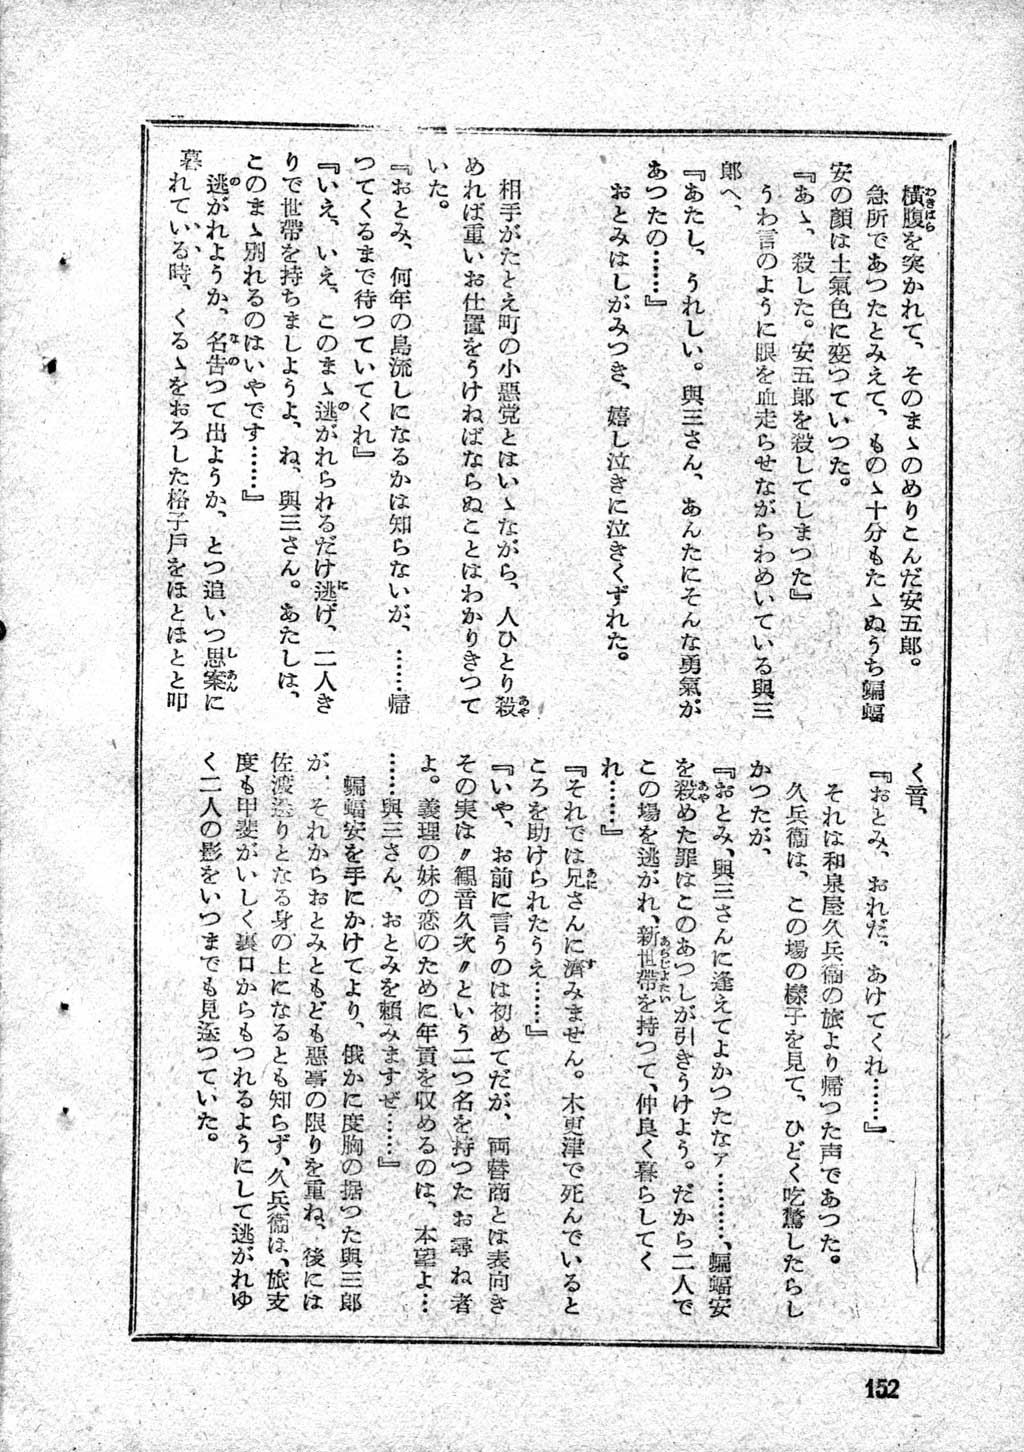 横腹を突かれて、そのまゝのめりこんだ安五郎。
急所であつたとみえて、ものゝ十分もたゝぬうち蝙蝠
安の顔は土氣色に変つていつた。
『あゝ、殺した。安五郎を殺してしまつた』
うわ言のように眼を血走らせながらわめいている與三
郎へ、
『あたし、うれしい。與三さん、あんたにそんな勇氣が
あつたの……』
おとみはしがみつき、嬉し泣きに泣きくずれた。
相手がたとえ町の小惡党とはいゝながら、人ひとり殺
めれば重いお仕置をうけねばならぬことはわかりきつて
いた。
『おとみ、何年の島流しになるかは知らないが、……帰
つてくるまで待つていてくれ』
『いえ、いえ、このまゝ逃がれられるだけ逃げ、二人き
りで世帶を持ちましようよ、ね、與三さん。あたしは、
このまゝ別れるのはいやです……』
逃がれようか、名告つて出ようか、とつ追いつ思案に
暮れている時、くるゝをおろした格子戸をほとほとと叩
く音、
『おとみ、おれだ、あけてくれ……』
それは和泉屋久兵衞の旅より帰つた声であつた。
久兵衞は、この場の樣子を見て、ひどく吃驚したらし
かつたが、
『おとみ、與三さんに逢えてよかつたなァ………、蝙蝠安
を殺めた罪はこのあつしが引きうけよう。だから二人で
この場を逃がれ、新世帶を持つて、仲良く暮らしてく
れ……』
『それでは兄さんに濟みません。木更津で死んでいると
ころを助けられたうえ……』
『いや、お前に言うのは初めてだが、両替商とは表向き
その実は〃観音久次〃という二つ名を持つたお尋ね者
よ。義理の妹の恋のために年貢を収めるのは、本望よ…
……與三さん、おとみを頼みますぜ……』
蝙蝠安を手にかけてより、俄かに度胸の据つた與三郎
が、それからおとみともども惡事の限りを重ね、後には
佐渡送りとなる身の上になるとも知らず、久兵衞は、旅支
度も甲斐がいしく裏口からもつれるようにして逃がれゆ
く二人の影をいつまでも見送つていた。
152